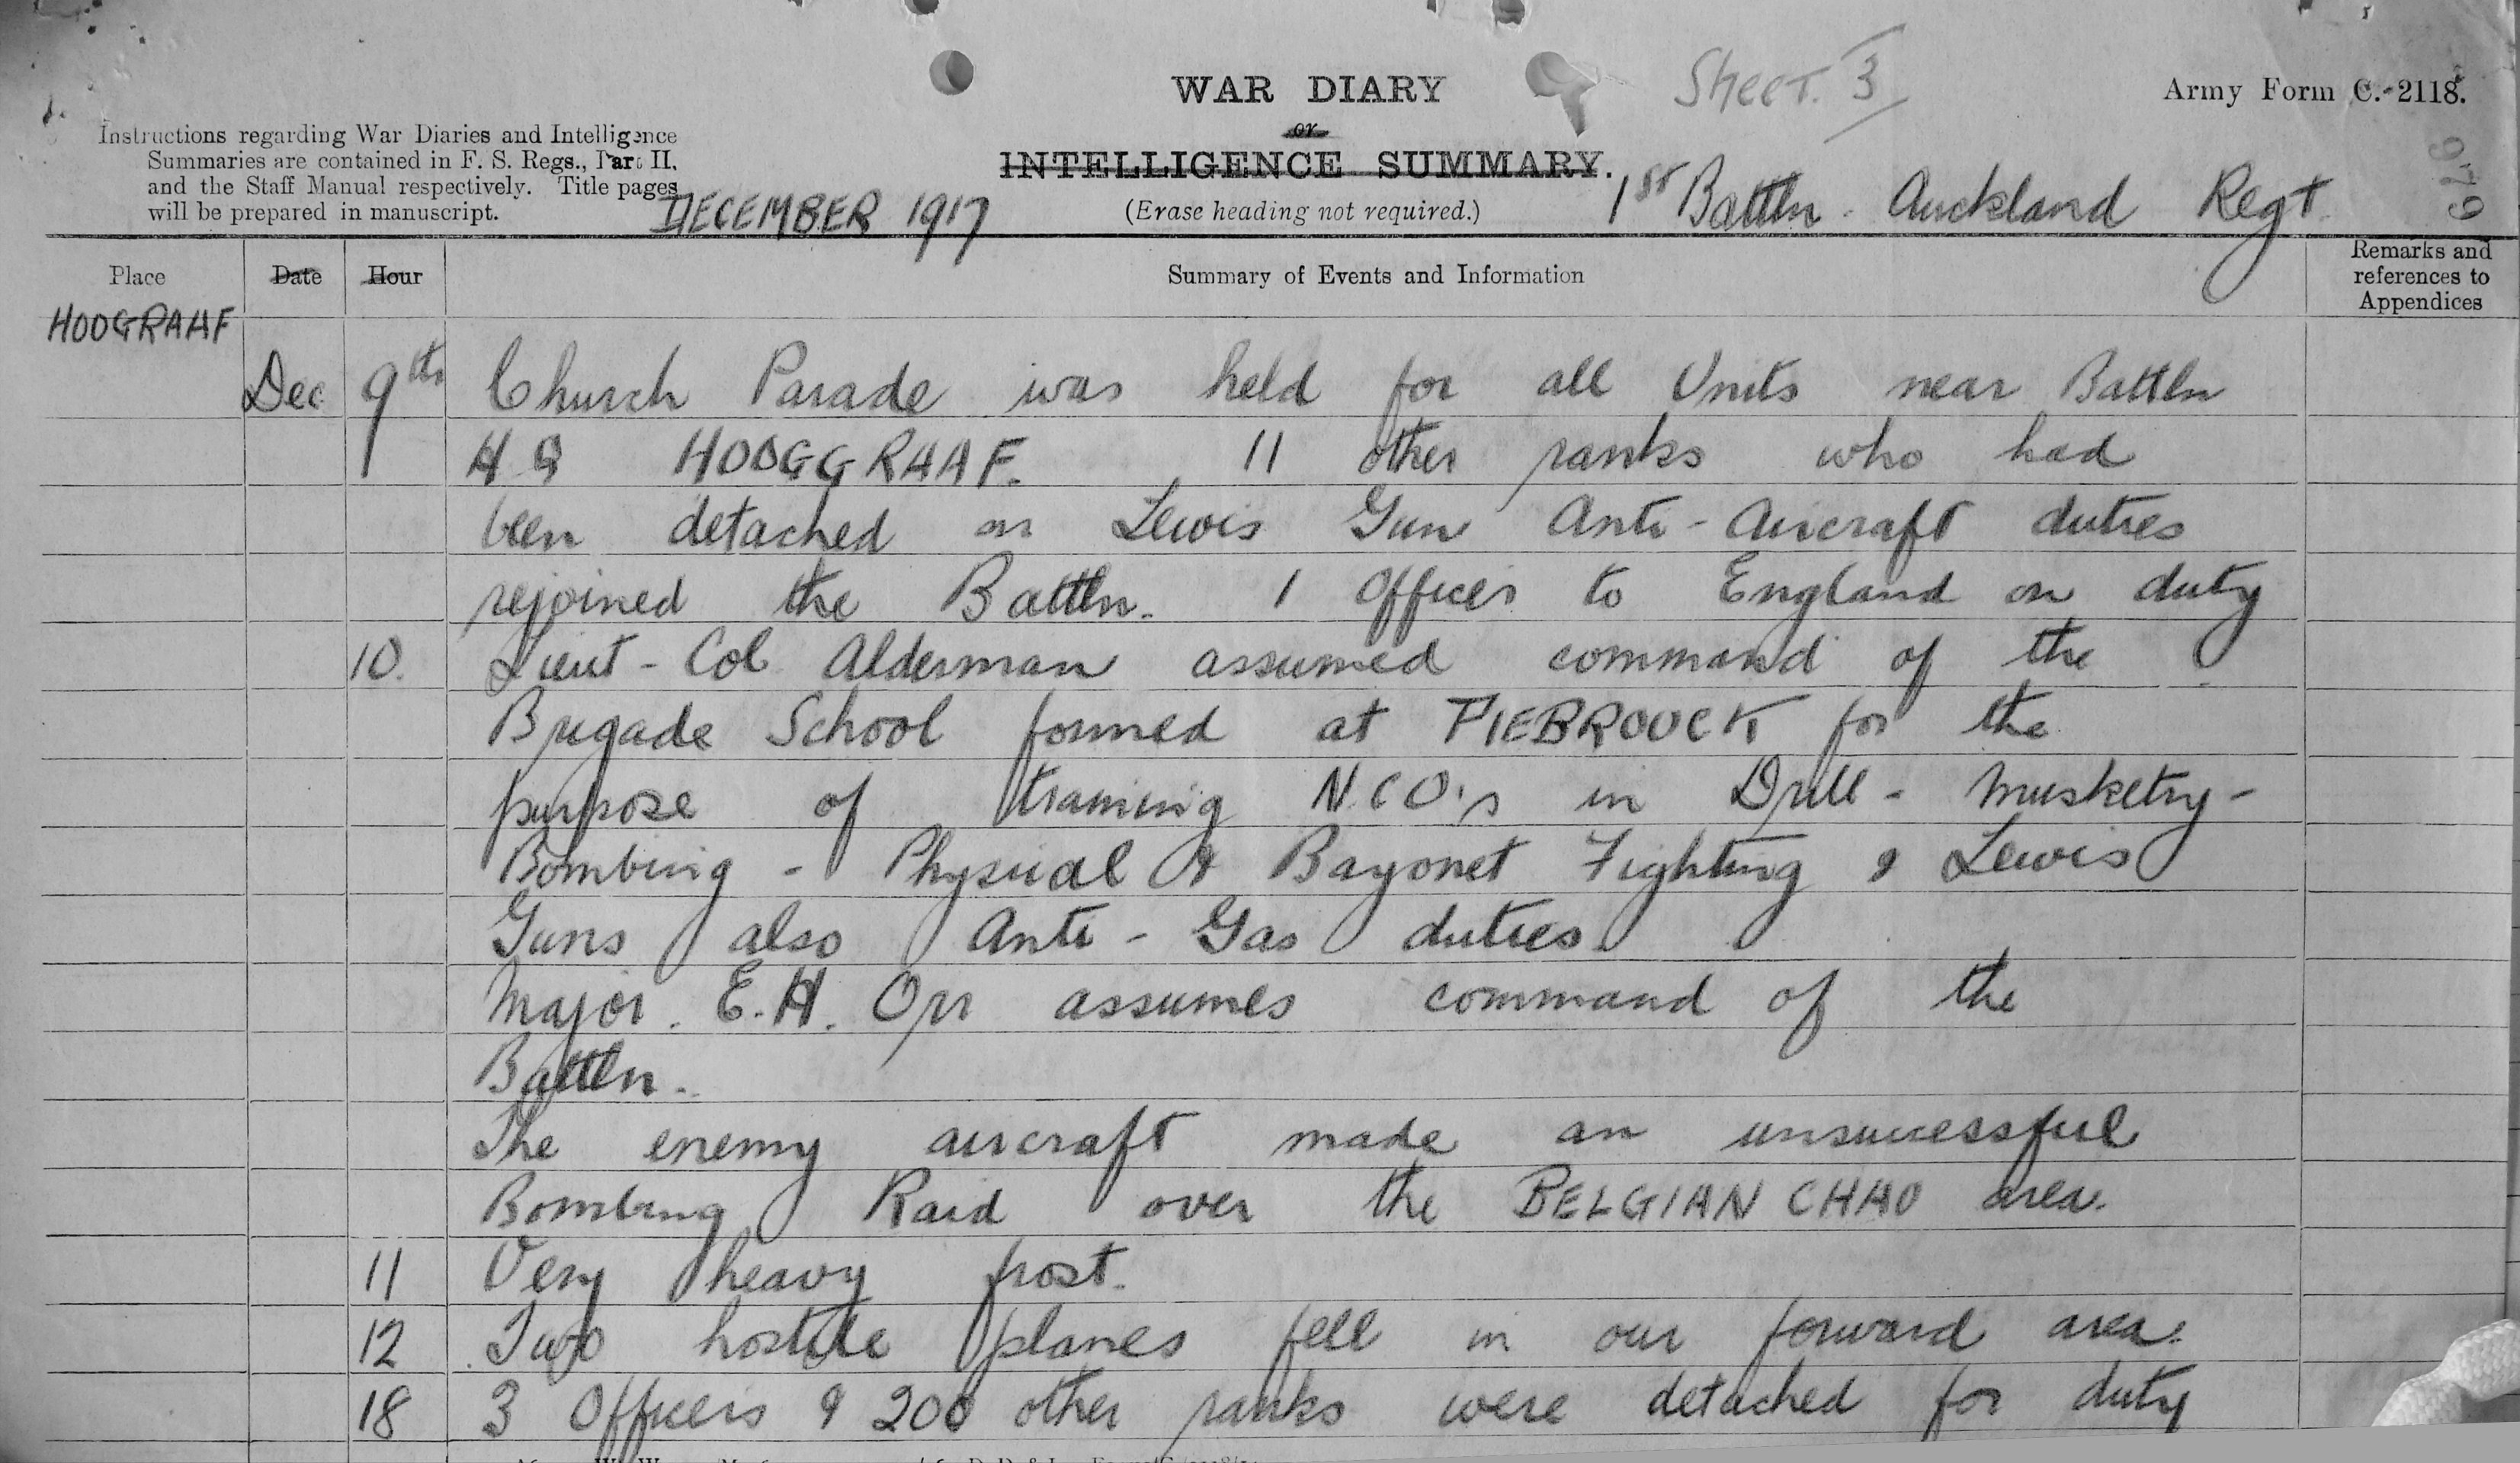 Sheet. 3
WAR DIARY
Army Form C.-2118.
or
INTELLIGENCE SUMMARY.
(Erase heading not required.)
Instructions regarding War Diaries and Intelligence
Summaries are contained in F. S. Regs., Part II.
and the Staff Manual respectively. Title pages
will be prepared in manuscript.
DECEMBER 1917
1st Battln. Auckland Regt.
979
Place Date Hour Summary of Events and Information Remarks and
references to
Appendices
HOOGRAAF
Dec 9th Church Parade was held for all Units near Battln
H Q HOOGGRAAF. 11 other ranks who had
been detached on Lewis Gun Anti-Aircraft duties
rejoined the Battln. 1 Officer to England on duty
10. Lieut-Col Alderman assumed command of the
Brigade School formed at PIEBROUCK for the
purpose of training N.C.O.'s in Drill - Musketry -
Bombing - Physical & Bayonet Fighting & Lewis
Guns also Anti-Gas duties.
Major. E.H. Orr assumes command of the
Battln.
The enemy aircraft made an unsuccessful
Bombing Raid over the BELGIAN CHAO area.
11 Very heavy frost.
12 Two hostile planes fell in our forward area.
18 3 Officers & 200 other ranks were detached for duty